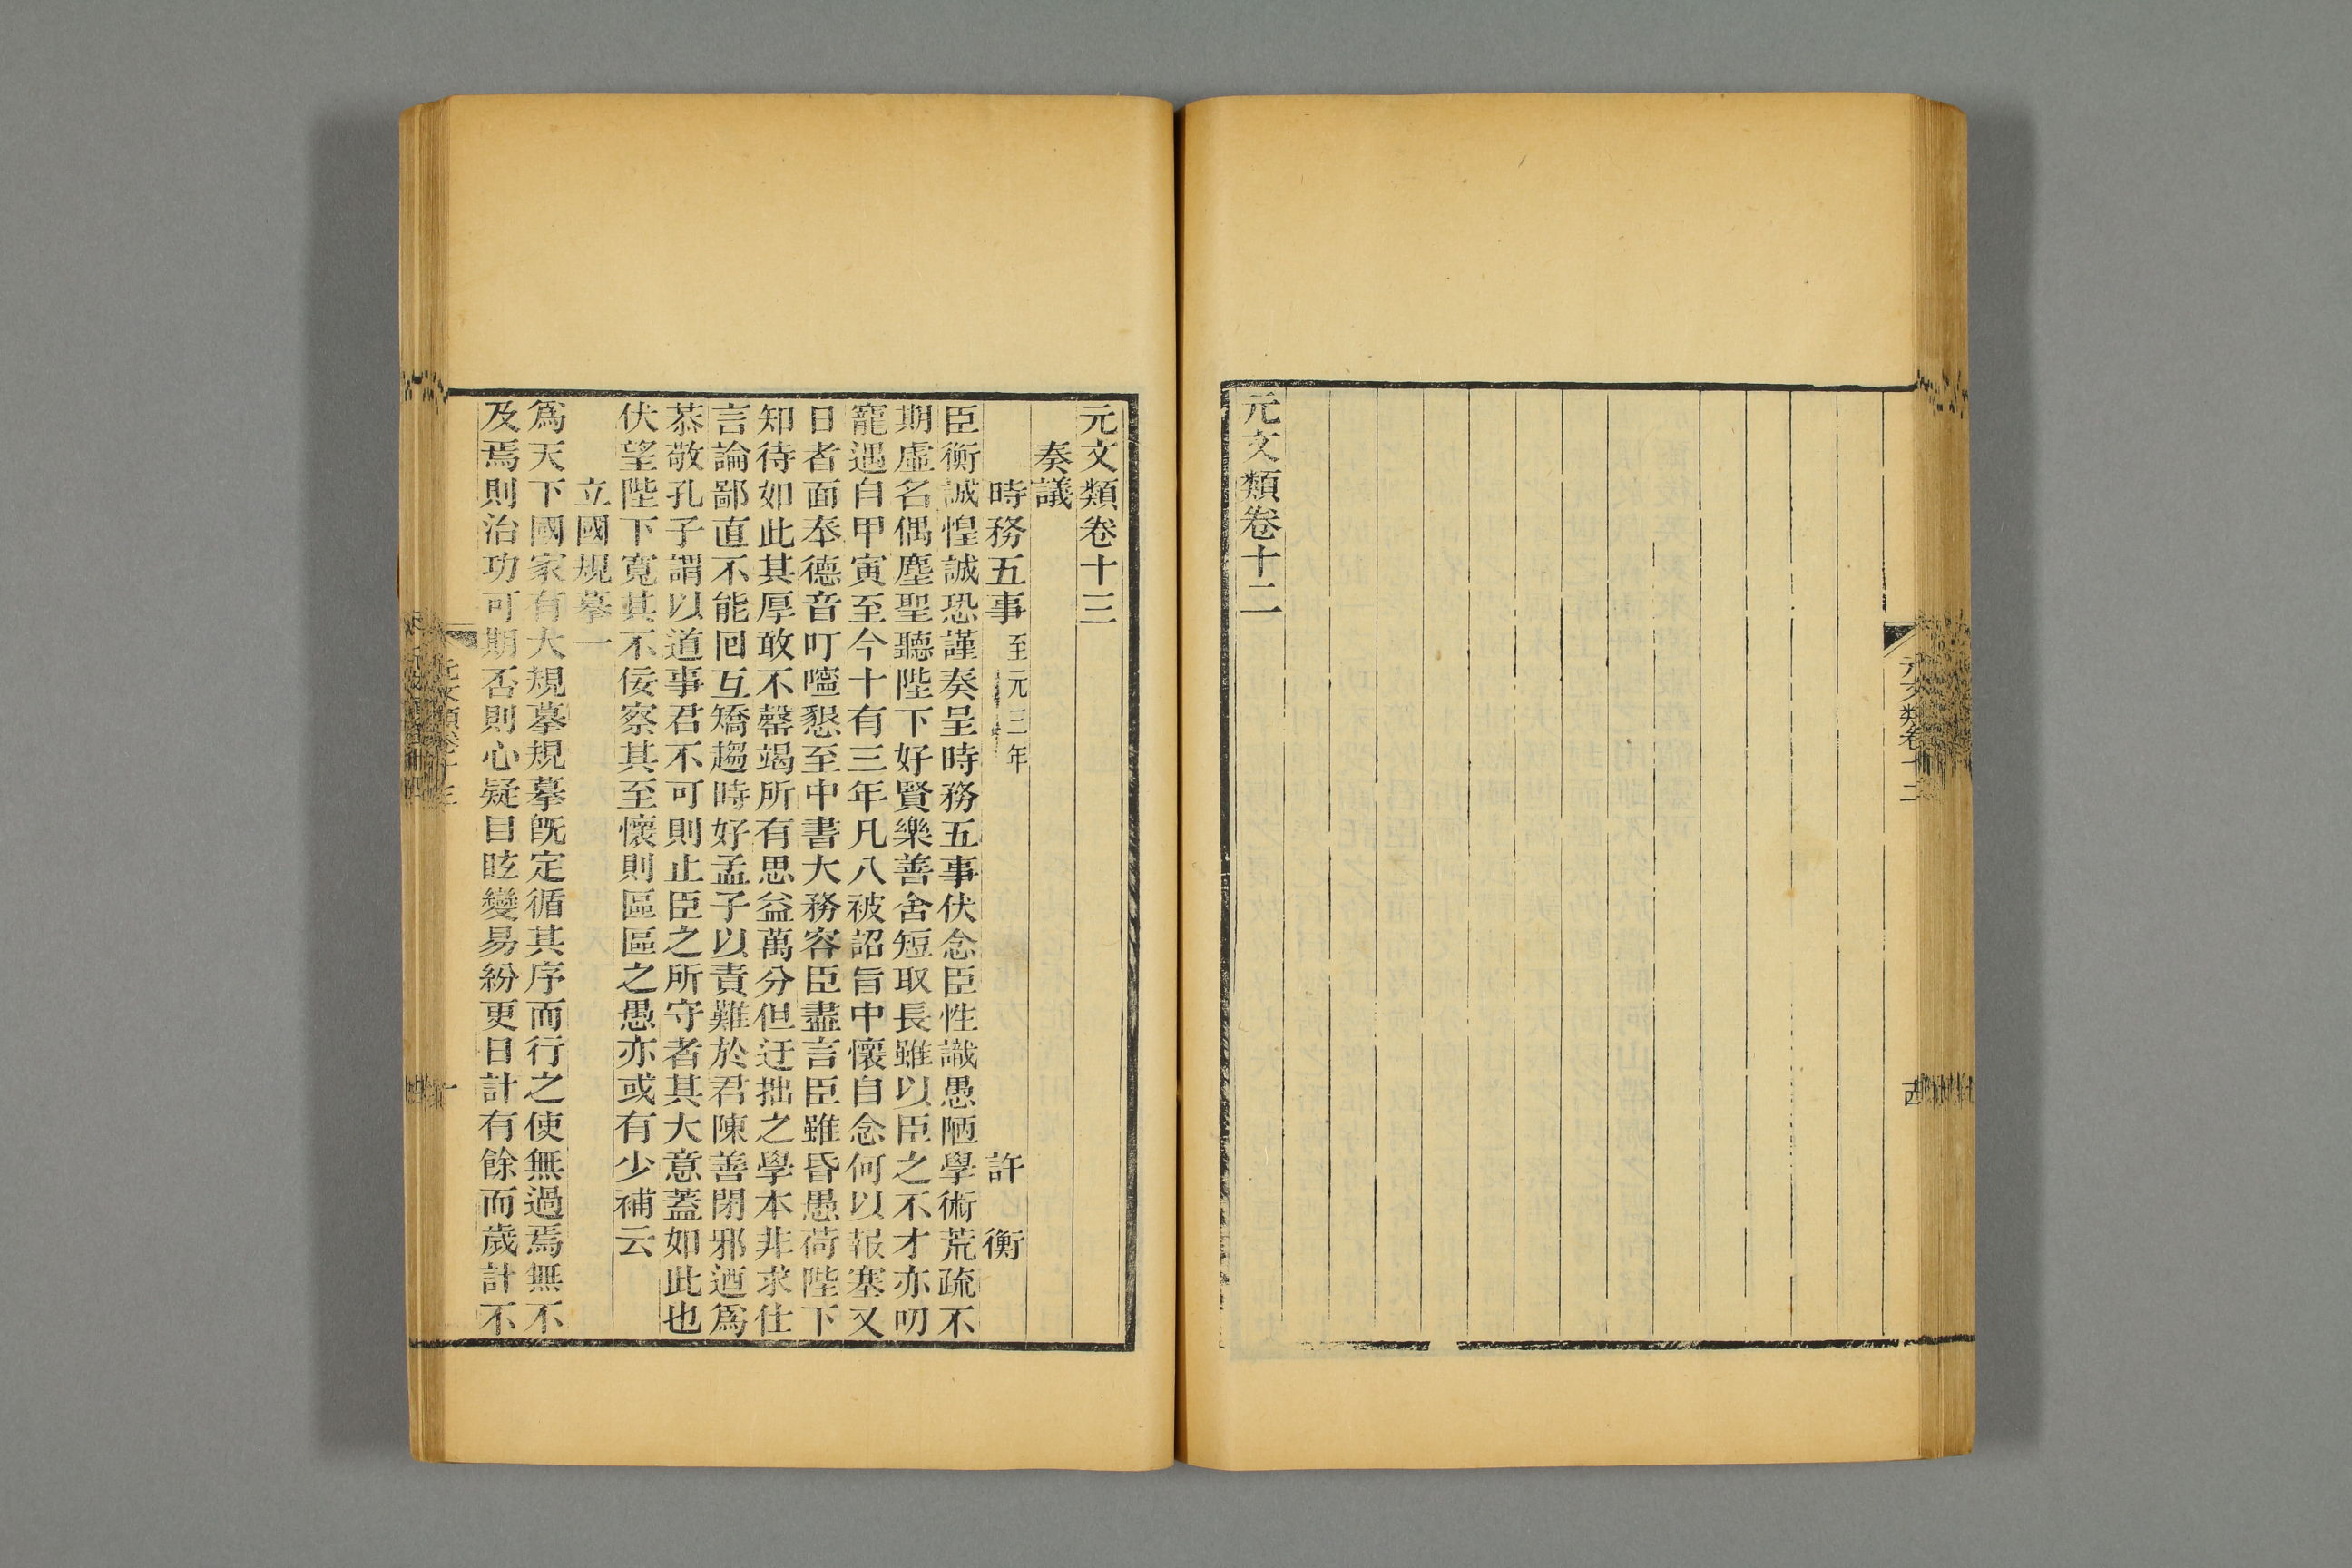 元文類卷十二
元文類卷十二
元文類卷十三
奏議
時務五事至元三年 許衡
臣衡誠惶誠恐謹奏呈時務五事伏念臣性識愚陋學術荒疏不
期虛名偶塵聖聽陛下好賢樂善舍短取長雖以臣之不才亦叨
寵遇自甲寅至今十有三年凡八被詔旨中懷自念何以報塞又
日者面奉德音叮嚀懇至中書大務容臣盡言臣雖昏愚荷陛下
知待如此其厚敢不罄竭所有思益萬分但迂拙之學本非求仕
言論鄙直不能囘互矯趨時好孟子以責難於君陳善閉邪迺爲
恭敬孔子謂以道事君不可則止臣之所守者其大意蓋如此也
伏望陛下寬其不佞察其至懷則區區之愚亦或有少補云
立國規摹一
爲天下國家有大規摹規摹旣定循其序而行之使無過焉無不
及焉則治功可期否則心疑目眩變易紛更日計有餘而歲計不
元文類卷十三 一